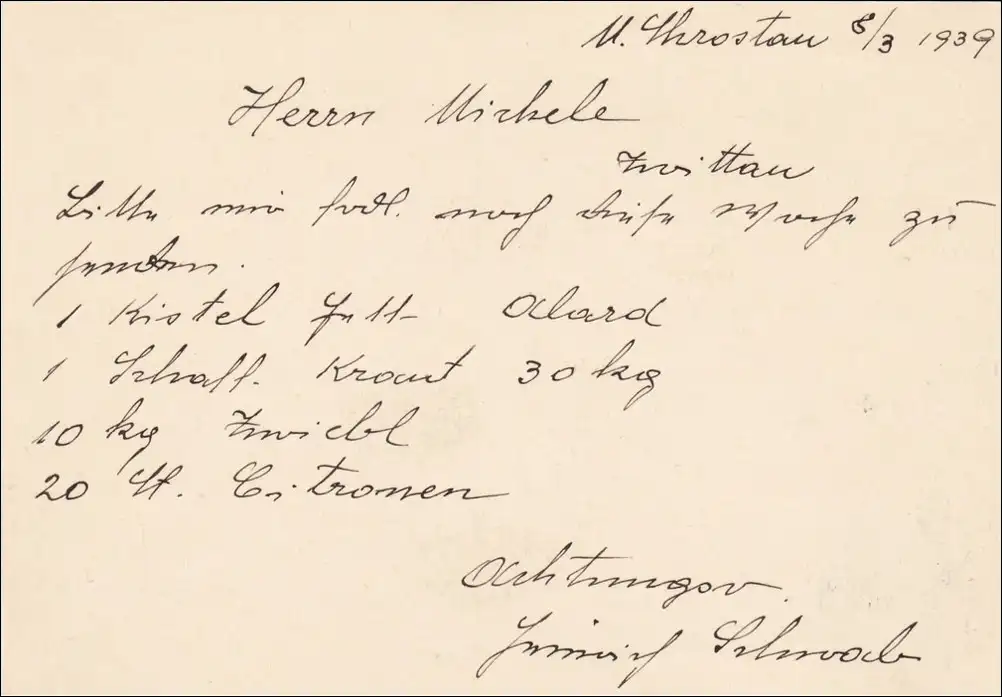 M. Chrostau 8/3 1939
Herrn Mickele
Zwittau
Bitte mir frdl. noch diese Woche zu
senden.
1 Kistel Fett
1 Schaff. Kraut 30 kg
10 kg Zwiebl
20 St. Citronen
Achtungsv.
Heinrich Schwab